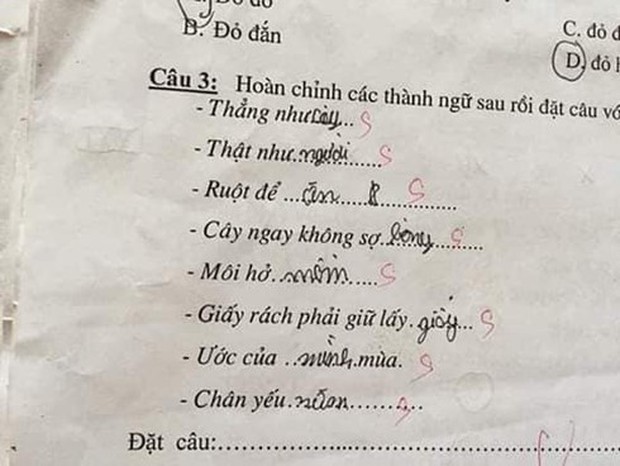 B. Đỏ đắn
C. đỏ đ
D. đỏ
Câu 3: Hoàn chỉnh các thành ngữ sau rồi đặt câu vớ
- Thẳng như cây... S
- Thật như người...... S
- Ruột để ...ăn..... S
- Cây ngay không sợ..... S
- Môi hở..mồm..... S
- Giấy rách phải giữ lấy.giấy... S
- Ước của ..mình.mùa. S
- Chân yếu......... S
Đặt câu: